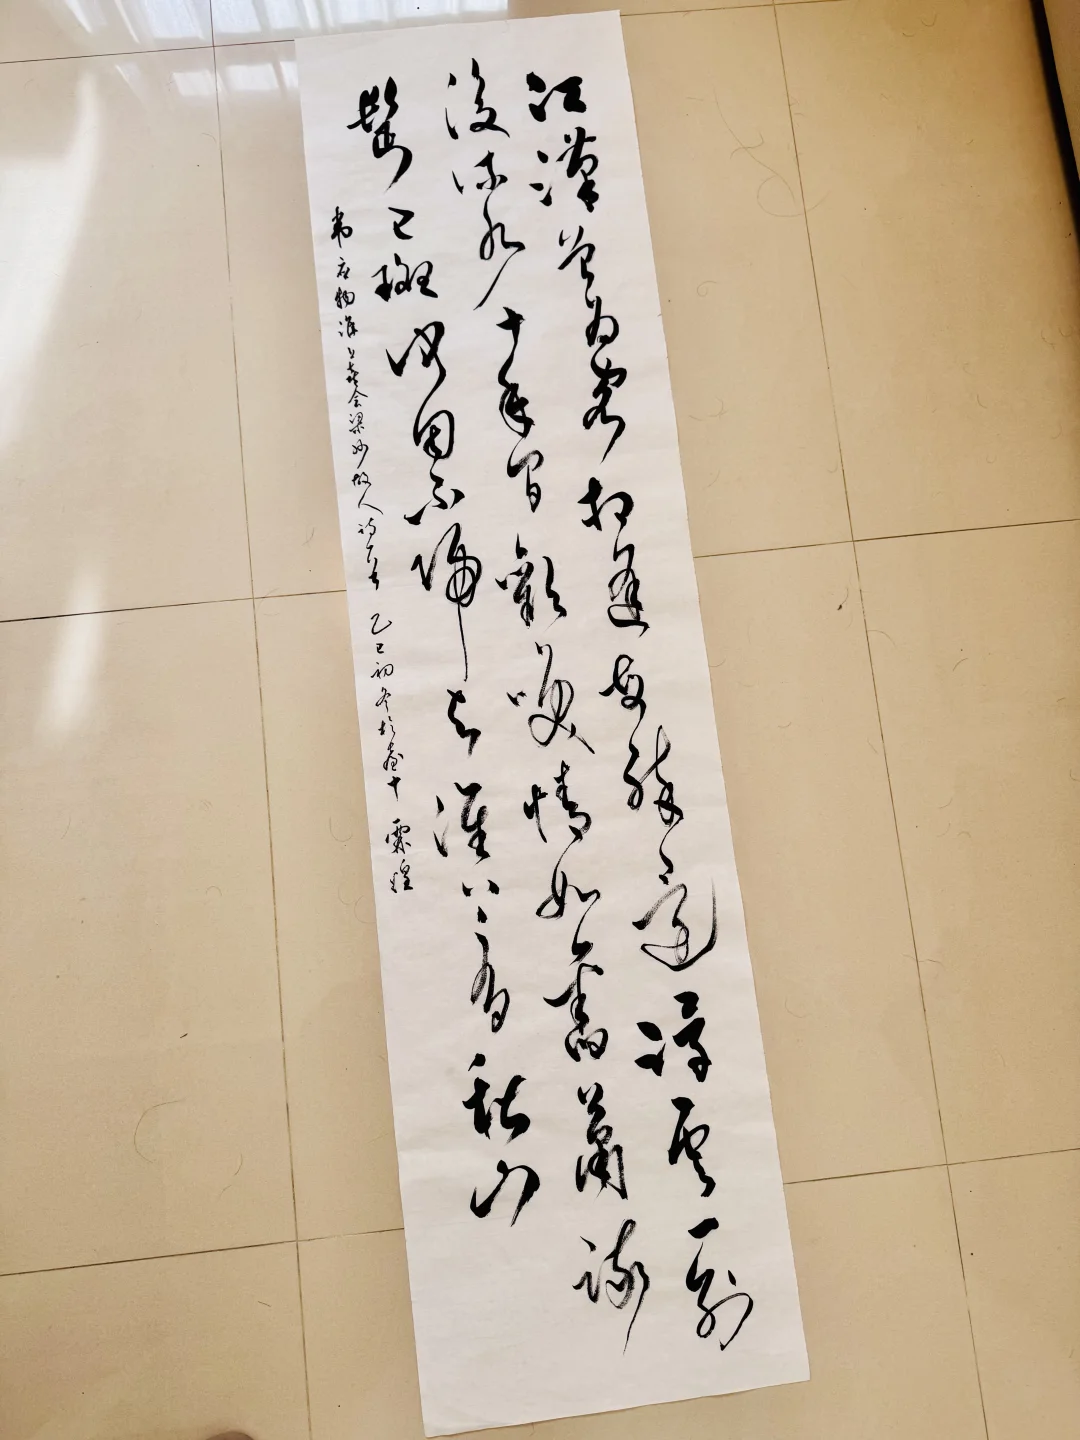 江漢曾為客相逢每醉還浮雲一別
後流水十年間歡笑情如舊蕭疏
鬢已斑何因不歸去淮上有秋山
韋应物淮上喜会梁州故人詩一首 乙巳初冬於 霖煌